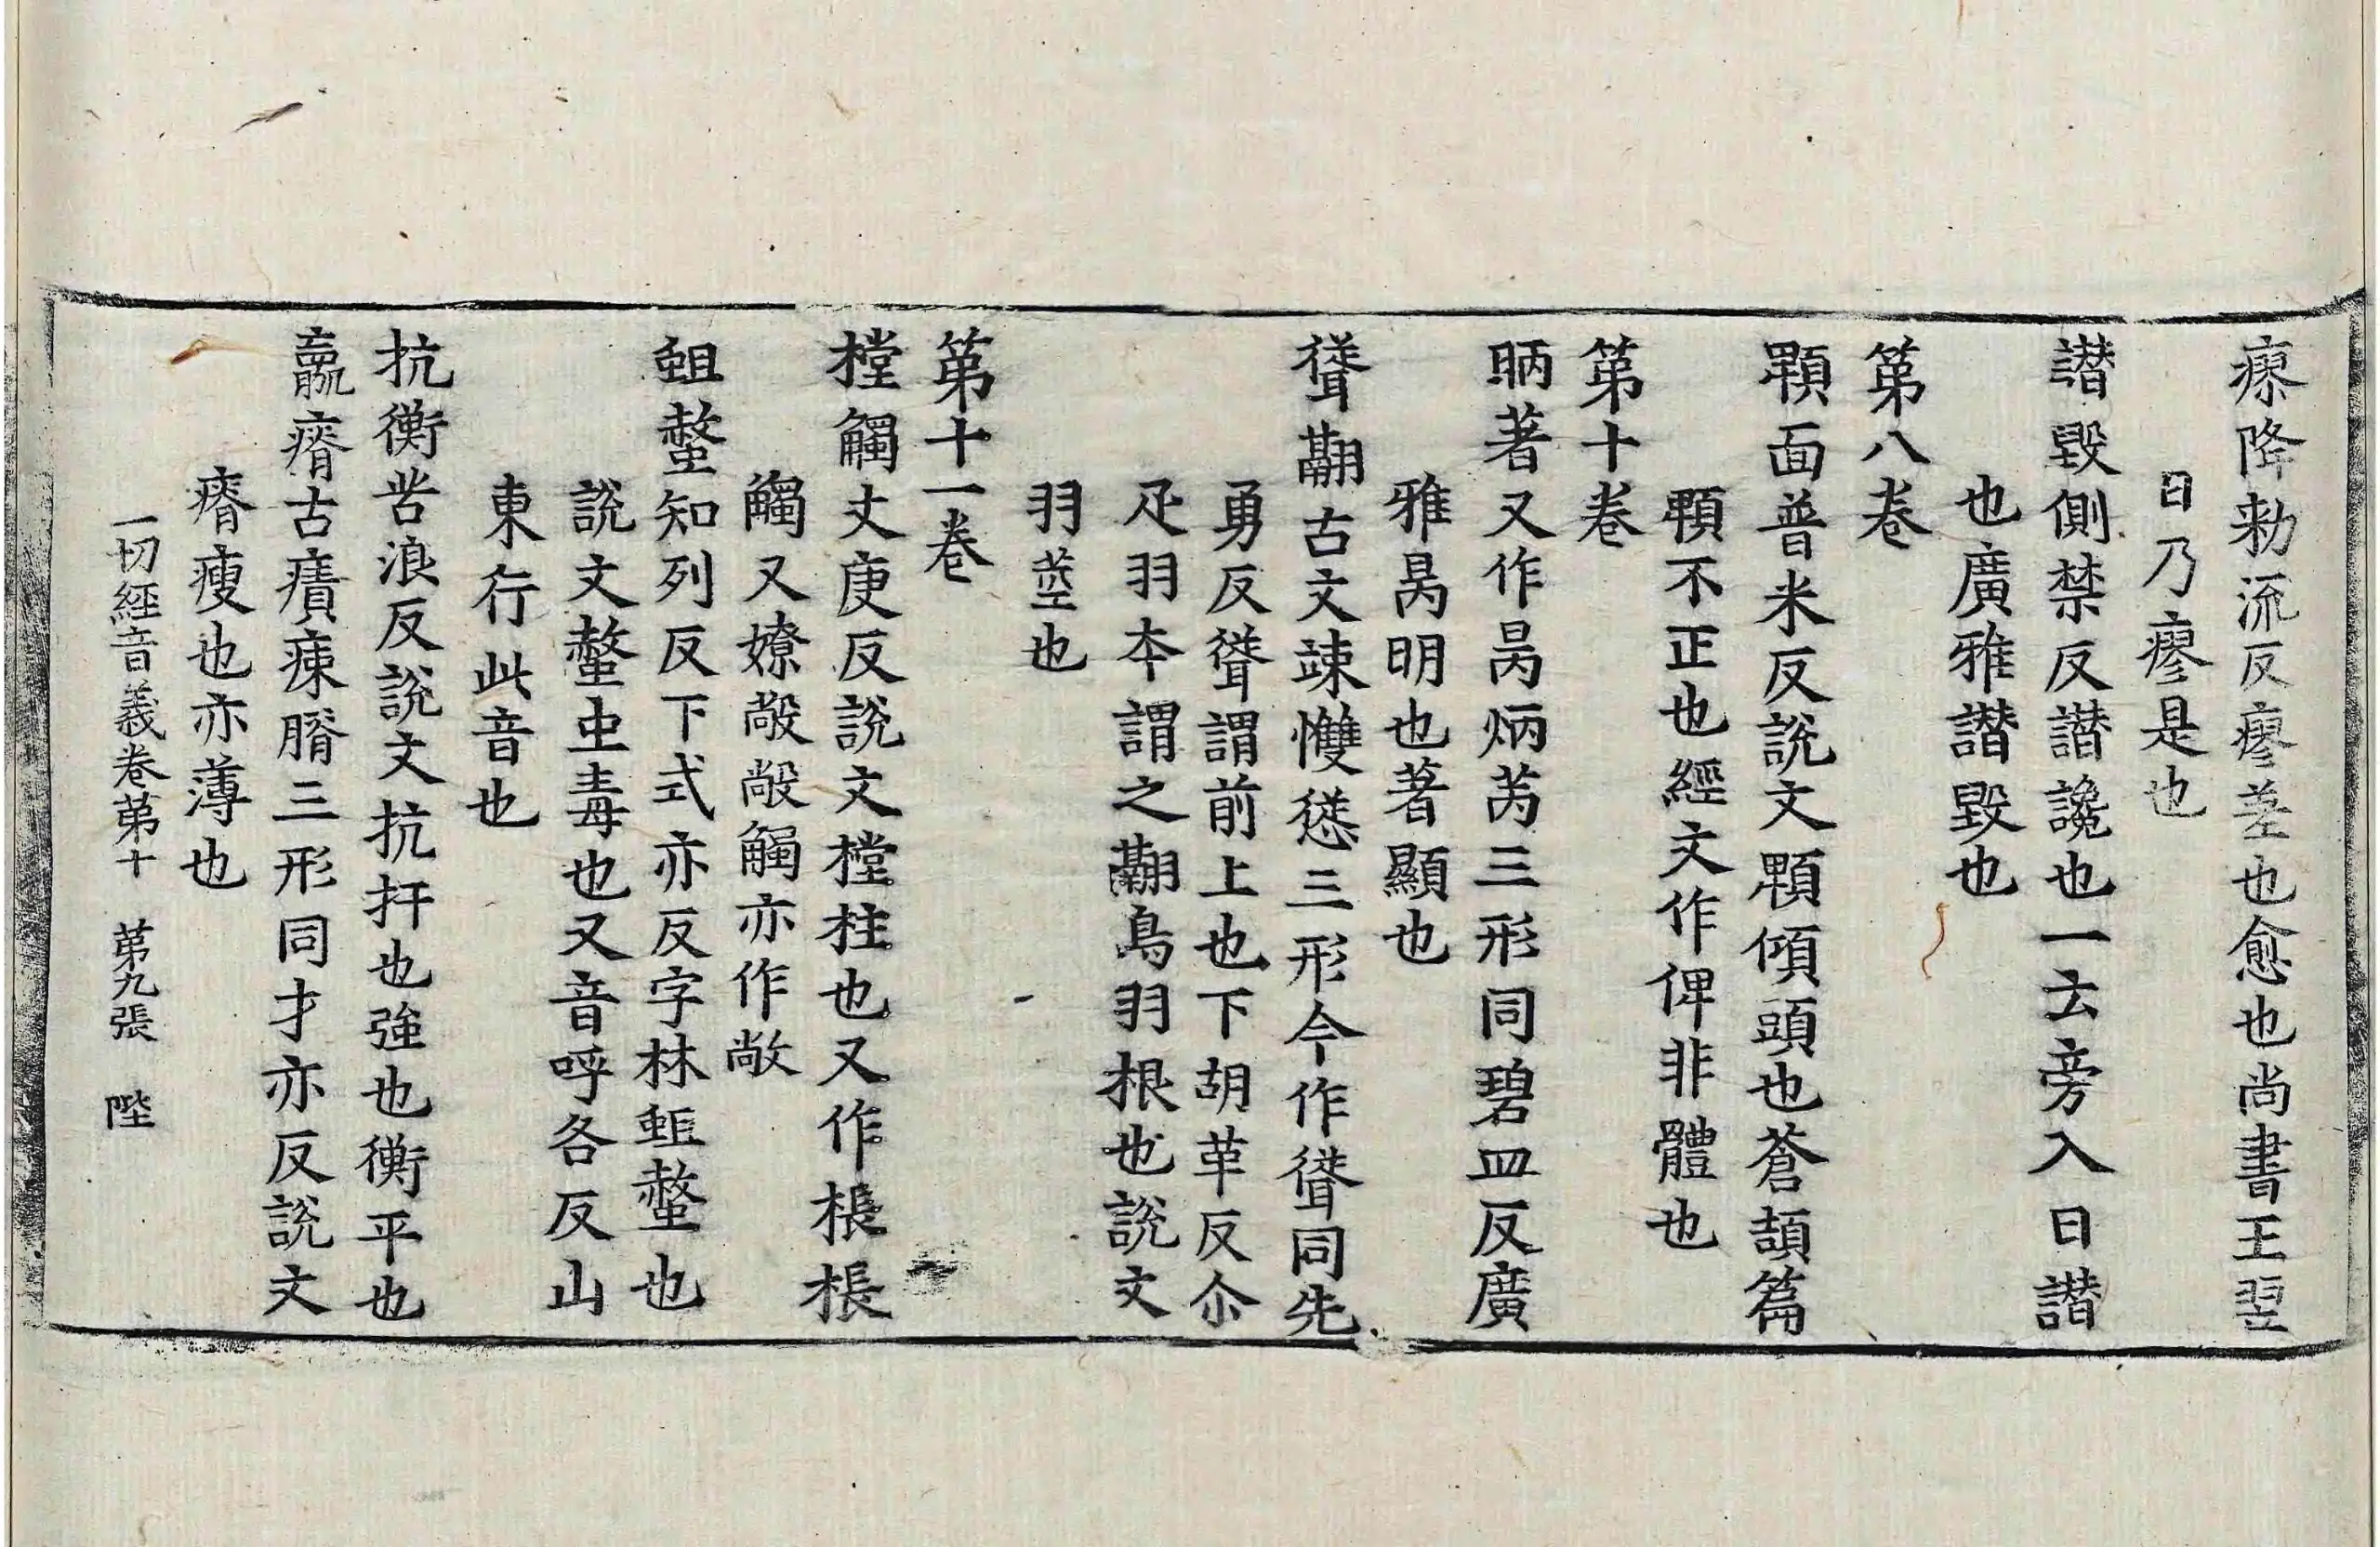 瘵降勑流反瘳差也愈也尚書王翌
日乃瘳是也
譛毀側禁反譛讒也一云旁入曰譛
也廣雅譛毀也
第八卷
顆面普米反說文顆傾頭也蒼頡篇
顆不正也經文作俾非體也
第十卷
昞著又作昺炳苪三形同碧皿反廣
雅昺明也著顯也
聳翮古文竦慴愯三形今作聳同先
勇反聳謂前上也下胡革反尒
疋羽本謂之翮鳥羽根也說文
羽莖也
第十一卷
樘觸丈庚反說文樘柱也又作棖棖
觸又嫽敞敞觸亦作敞
蛆螫知列反下式亦反字林蛆螫也
說文螫虫毒也又音呼各反山
東行此音也
抗衡苦浪反說文抗扞也強也衡平也
羸瘠古㾊𤷃膌三形同才亦反說文
瘠瘦也亦薄也
一切經音義卷第十　第九張　陛